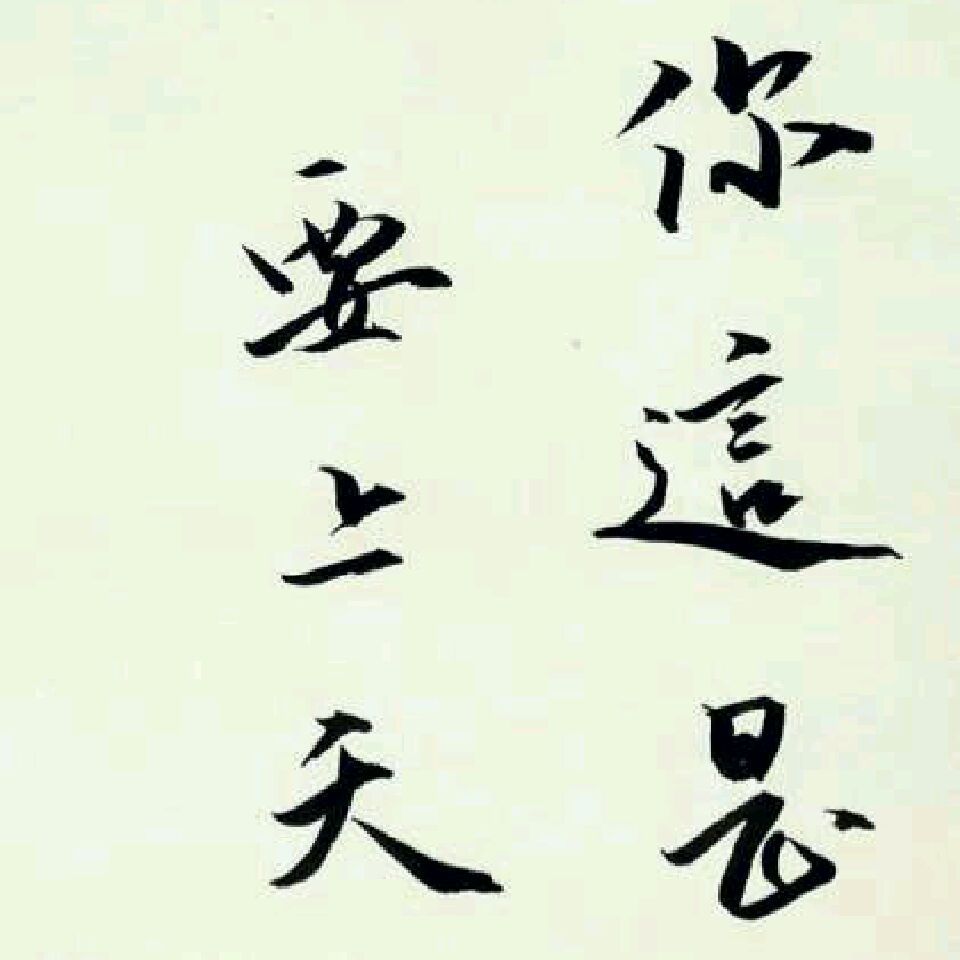 你這是
要上天